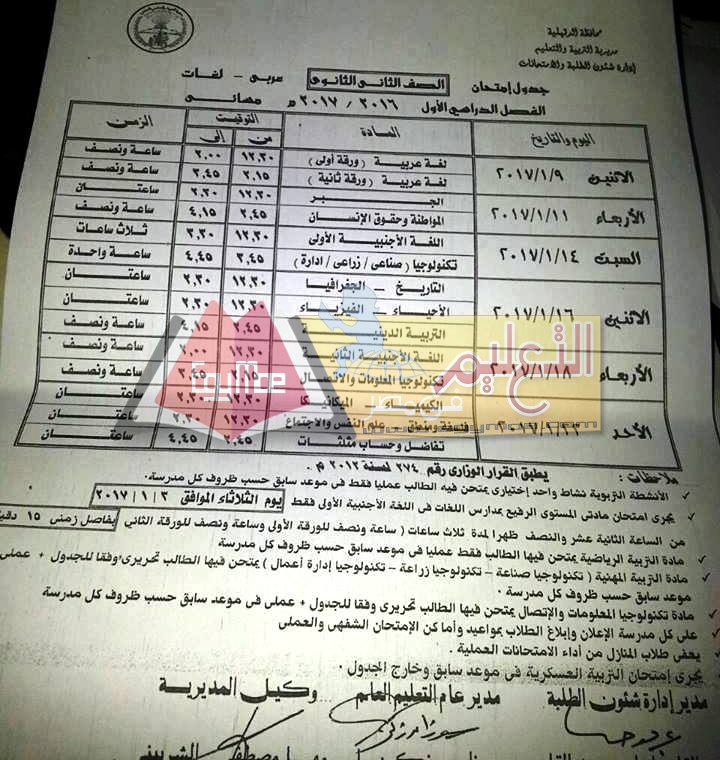 محافظة الدقهلية
مديرية التربية والتعليم
إدارة شئون الطلبة والامتحانات
جدول إمتحان الصف الثانى الثانوى عربى - لغات
الفصل الدراسي الأول ٢٠١٦ / ٢٠١٧ م مسائى
اليوم والتاريخ المادة التوقيت من إلى الزمن
الاثنين ٢٠١٧/١/٩ لغة عربية (ورقة أولى) ١٢,٣٠ ٢,٠٠ ساعة ونصف
لغة عربية (ورقة ثانية) ٢,١٥ ٣,٤٥ ساعة ونصف
الأربعاء ٢٠١٧/١/١١ الجبر ١٢,٣٠ ٢,٣٠ ساعتان
المواطنة وحقوق الإنسان ٢,٤٥ ٤,١٥ ساعة ونصف
السبت ٢٠١٧/١/١٤ اللغة الأجنبية الأولى ١٢,٣٠ ٣,٣٠ ثلاث ساعات
تكنولوجيا (صناعى / زراعى / ادارة) ٣,٤٥ ٤,٤٥ ساعة واحدة
الاثنين ٢٠١٧/١/١٦ التاريخ - الجغرافيا ١٢,٣٠ ٢,٣٠ ساعتان
الأحياء - الفيزياء ١٢,٣٠ ٢,٣٠ ساعتان
التربية الدينية ٢,٤٥ ٤,١٥ ساعة ونصف
الأربعاء ٢٠١٧/١/١٨ اللغة الأجنبية الثانية ١٢,٣٠ ٢,٠٠ ساعة ونصف
تكنولوجيا المعلومات والاتصال ٢,١٥ ٣,٤٥ ساعة ونصف
الأحد الكيمياء - الميكانيكا ١٢,٣٠ ٢,٣٠ ساعتان
فلسفة ومنطق - علم النفس والاجتماع ١٢,٣٠ ٢,٣٠ ساعتان
تفاضل وحساب مثلثات ٢,٤٥ ٤,٤٥ ساعتان
التعليم
ملاحظات : يطبق القرار الوزارى رقم ٣٧٤ لسنة ٢٠١٢ م .
الأنشطة التربوية نشاط واحد إختيارى يمتحن فيه الطالب عمليا فقط فى موعد سابق حسب ظروف كل مدرسة.
يجرى امتحان مادتى المستوى الرفيع بمدارس اللغات فى اللغة الأجنبية الأولى فقط يوم الثلاثاء الموافق ٢٠١٧/١/٣
من الساعة الثانية عشر والنصف ظهرا لمدة ثلاث ساعات (ساعة ونصف للورقة الأولى وساعة ونصف للورقة الثانى بفاصل زمنى ١٥
مادة التربية الرياضية يمتحن فيها الطالب فقط عمليا فى موعد سابق حسب ظروف كل مدرسة
مادة التربية المهنية (تكنولوجيا صناعة - تكنولوجيا زراعة - تكنولوجيا إدارة أعمال) يمتحن فيها الطالب تحريرى وفقا للجدول + عملى
موعد سابق حسب ظروف كل مدرسة .
مادة تكنولوجيا المعلومات والإتصال يمتحن فيها الطالب تحريرى وفقا للجدول + عملى فى موعد سابق حسب ظروف كل مدرسة
على كل مدرسة الإعلان وإبلاغ الطلاب بمواعيد وأماكن الإمتحان الشفهى والعملى
يعفى طلاب المنازل من أداء الامتحانات العملية .
يجرى إمتحان التربية العسكرية فى موعد سابق وخارج الجدول .
مدير إدارة شئون الطلبة مدير عام التعليم العام وكيل المديرية